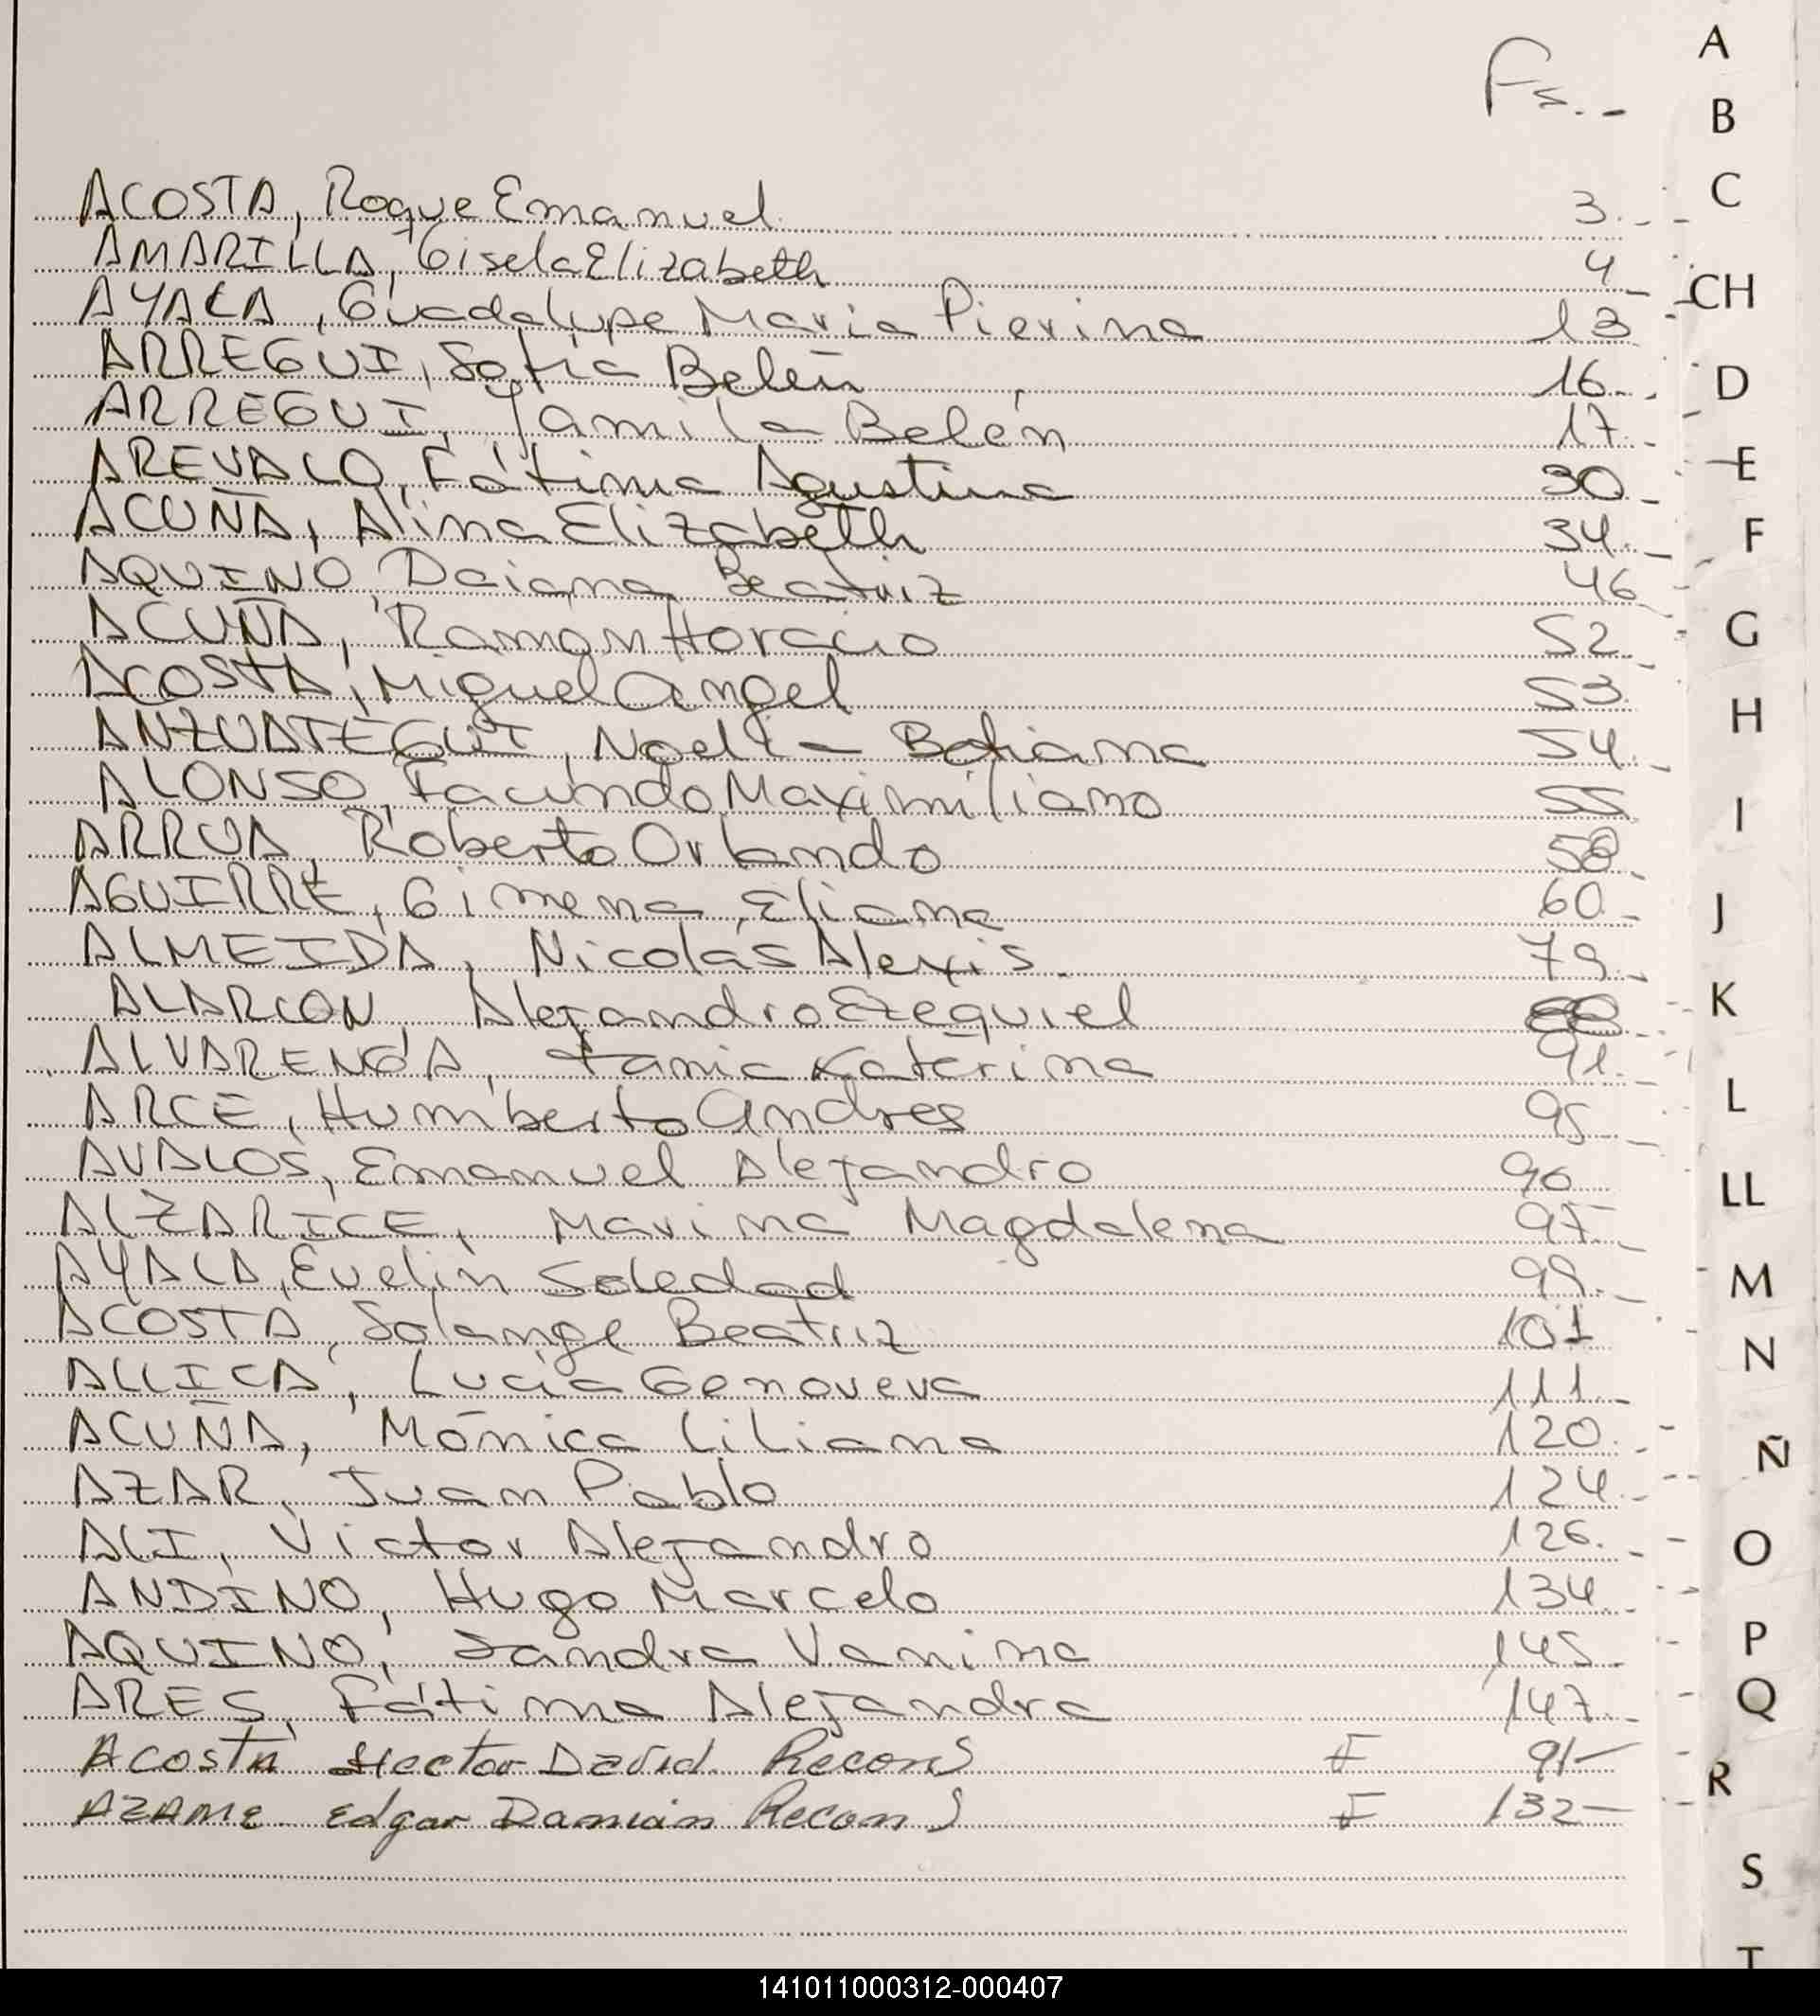 Fs.-
A
B
ACOSTA, Roque Emanuel 3.-
C
AMARILLA, Gisela Elizabeth 4
CH
AYALA, Guadalupe Maria Pierina 13
ARREGUI, Sofia Belén 16.-
D
ARREGUI, Yamila Belén 17.-
E
AREVALO, Fátima Agustina 30.-
ACUÑA, Alina Elizabeth 34.-
F
AQUINO, Daiana Beatriz 46
ACUÑA, Ramon Horacio 52.-
G
ACOSTA, Miguel Angel 53.
H
ANZUATEGUI, Noelia 54.-
ALONSO, Facundo Maximiliano 55
I
ARRUA, Roberto Orlando 58.-
AGUIRRE, Gimena Eliana 60.-
J
ALMEIDA, Nicolás Alexis. 79.-
ALARCON, Alejandro Ezequiel
K
ALVARENGA, Tania Katerina 91.-
L
ARCE, Humberto Andres 95.-
AVALOS, Emanuel Alejandro 96
LL
ALZARICE, Marina Magdalena 97.-
AYALA, Evelin Soledad 99.-
M
ACOSTA, Solange Beatriz 101
N
ALLICA, Lucia Genoveva 111.-
ACUÑA, Mónica Liliana 120.-
Ñ
AZAR, Juan Pablo 124.-
ALI, Victor Alejandro 126.-
O
ANDINO, Hugo Marcelo 134.-
AQUINO, Sandra Vanina 145.-
P
ARES, Fátima Alejandra 147.-
Q
ACOSTA Hector David Recons F 91-
R
AZAME Edgar Damián Recons F 132-
S
T
141011000312-000407